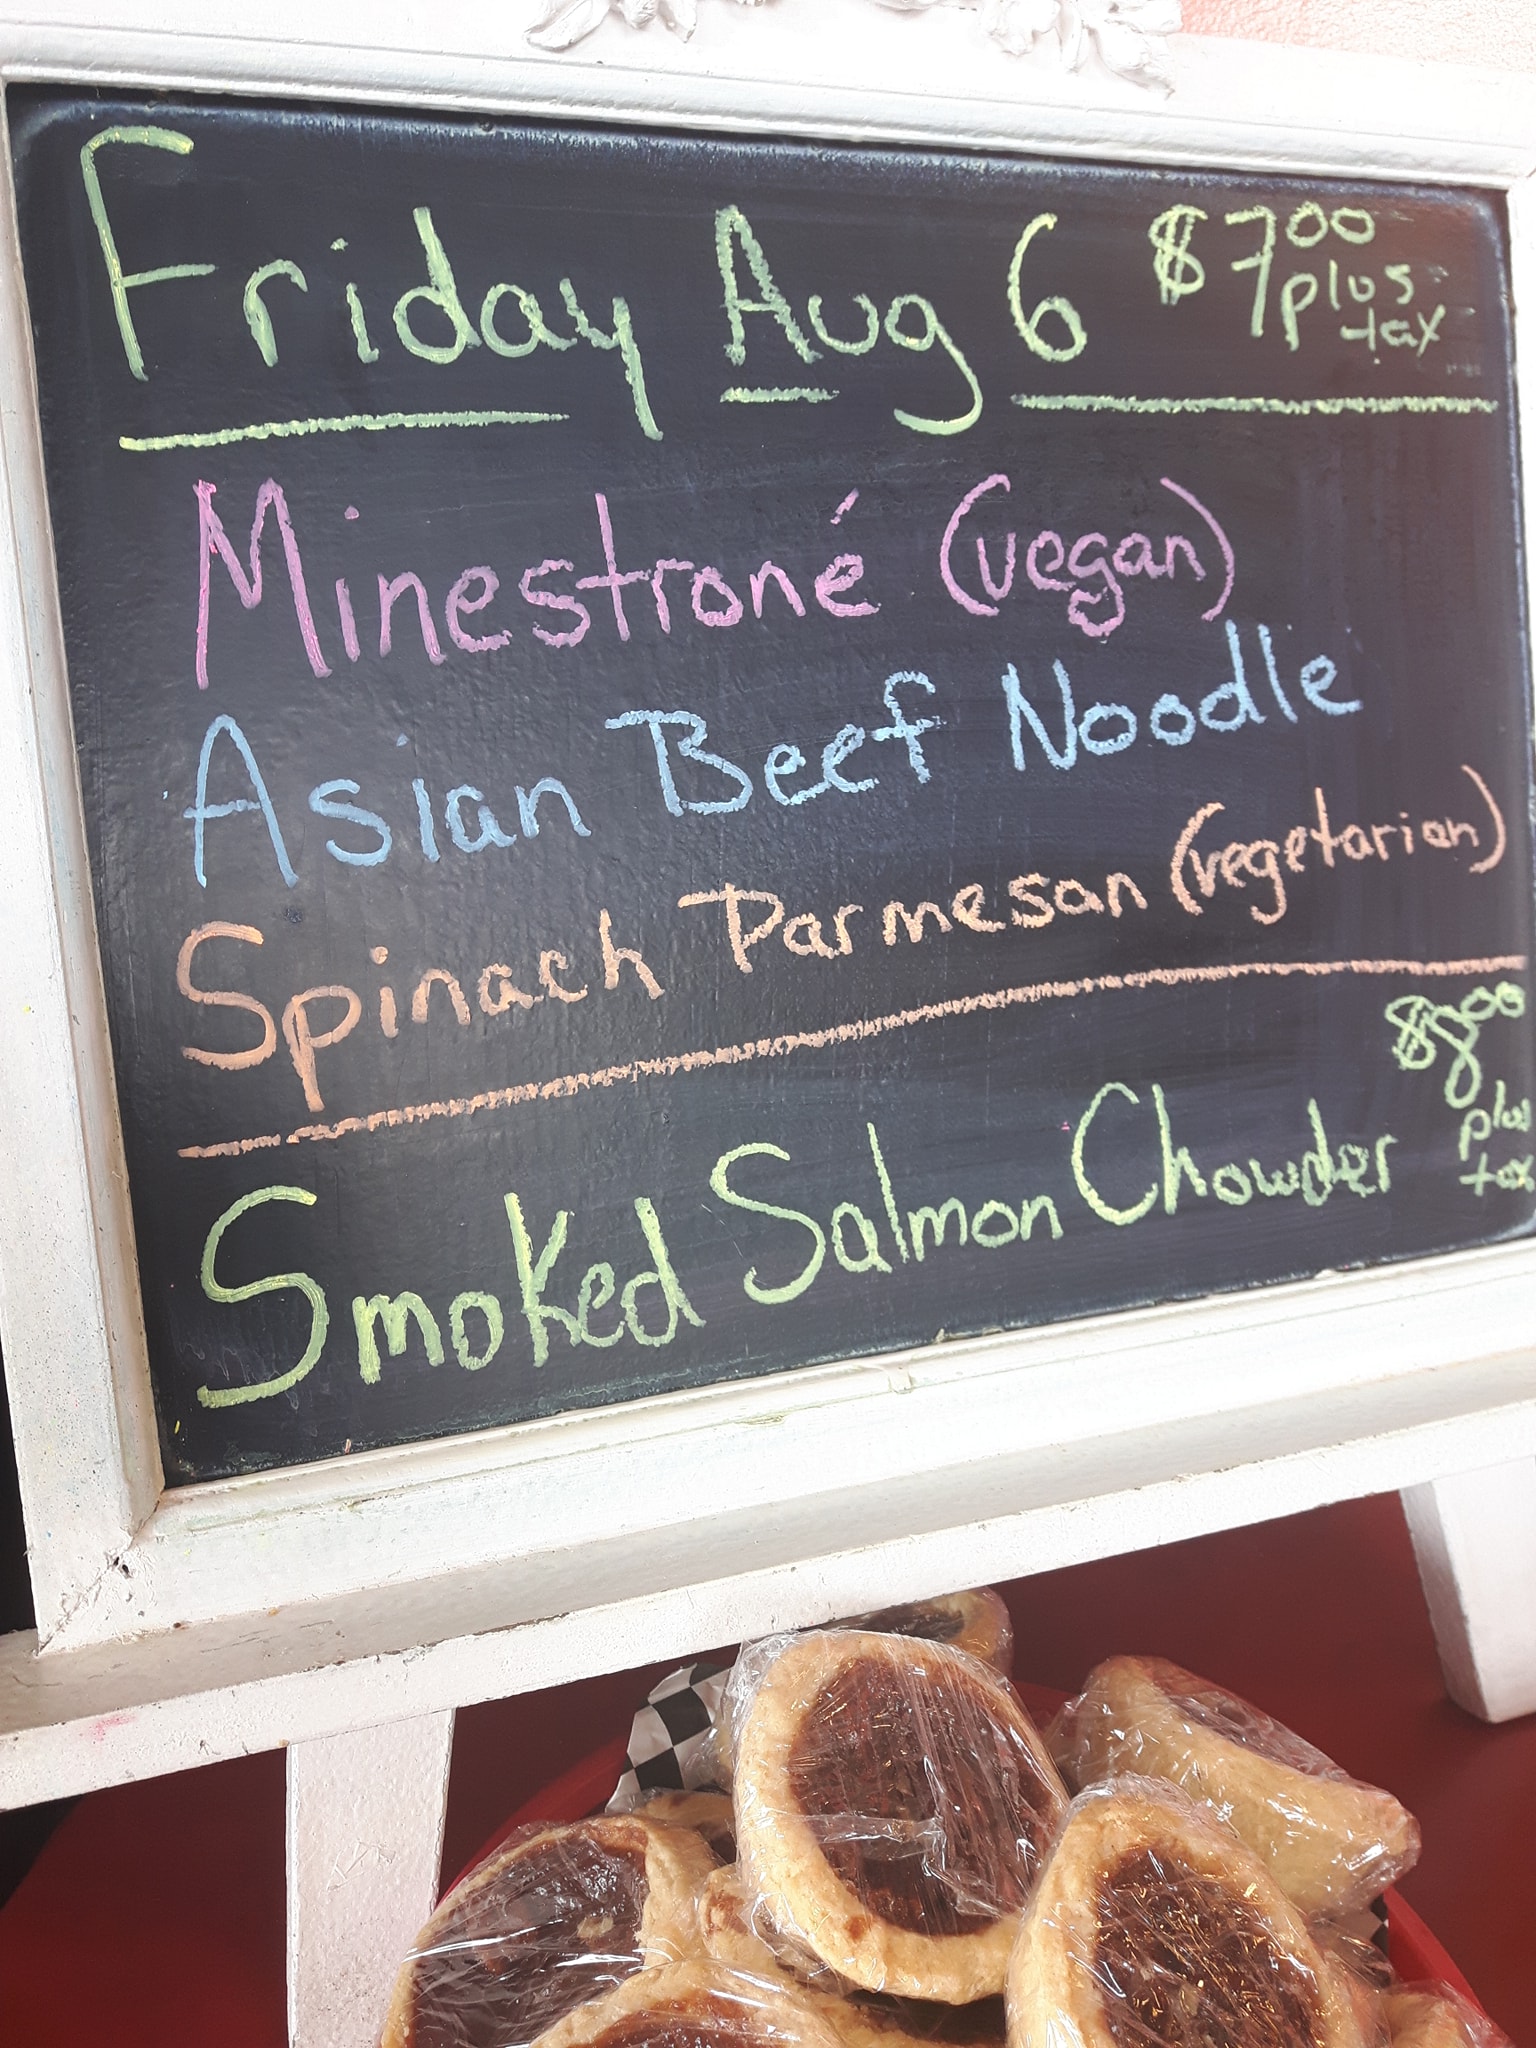 Friday Aug 6 $7.00 plus tax
Minestroné (vegan)
Asian Beef Noodle
Spinach Parmesan (vegetarian)
Smoked Salmon Chowder $8.00 plus tax